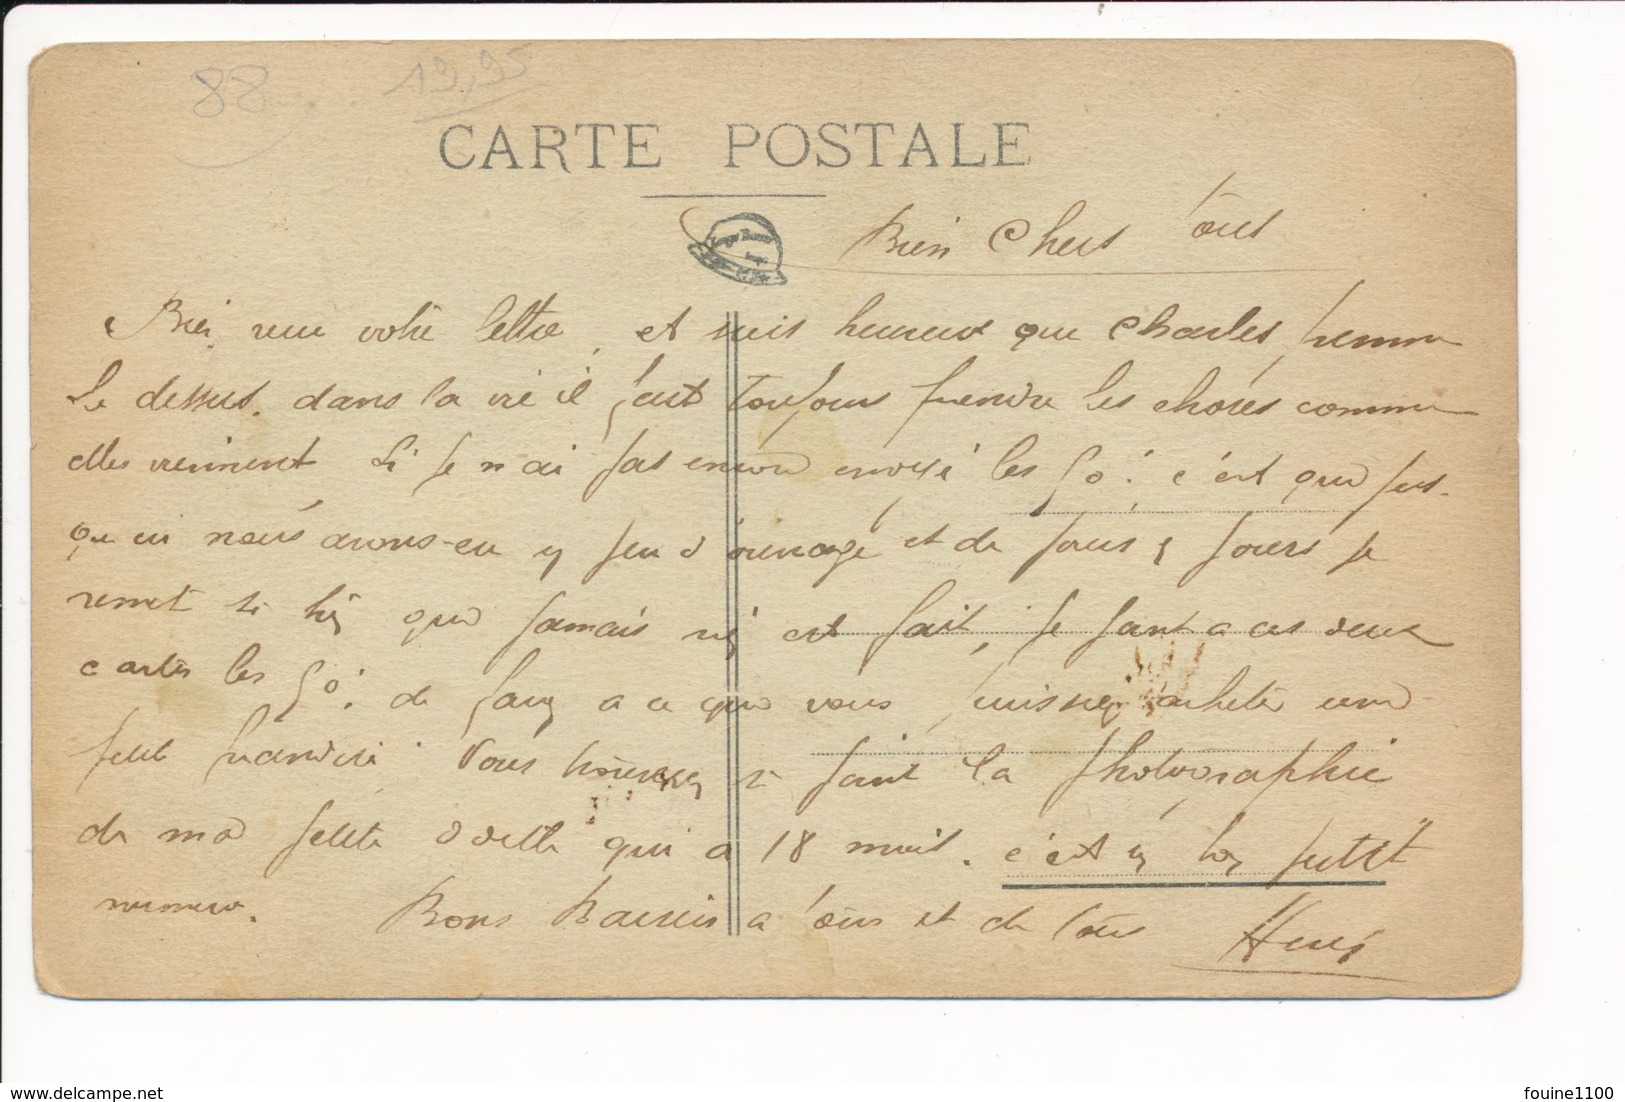 88 19,95
CARTE POSTALE
Bien Chers Tous
Bien reçu votre lettre, et suis heureux que Charles prenne
le dessus. dans la vie il faut toujours prendre les choses comme
elles viennent Si je n ai pas encore envoyé les c'est que jus-
qu ici nous avons eu un peu d'ouvrage et de jours a jours je
remet si bien que jamais rien est fait, je joint a ces deux
cartes les de façon a ce que vous puissiez acheter une
petit Vous trouverez si joint la photographie
de ma petite Odette qui a 18 mois. c'est un bon petit
numero. Bons Baisers a tous et de tous Henri
www.delcampe.net fouine1100